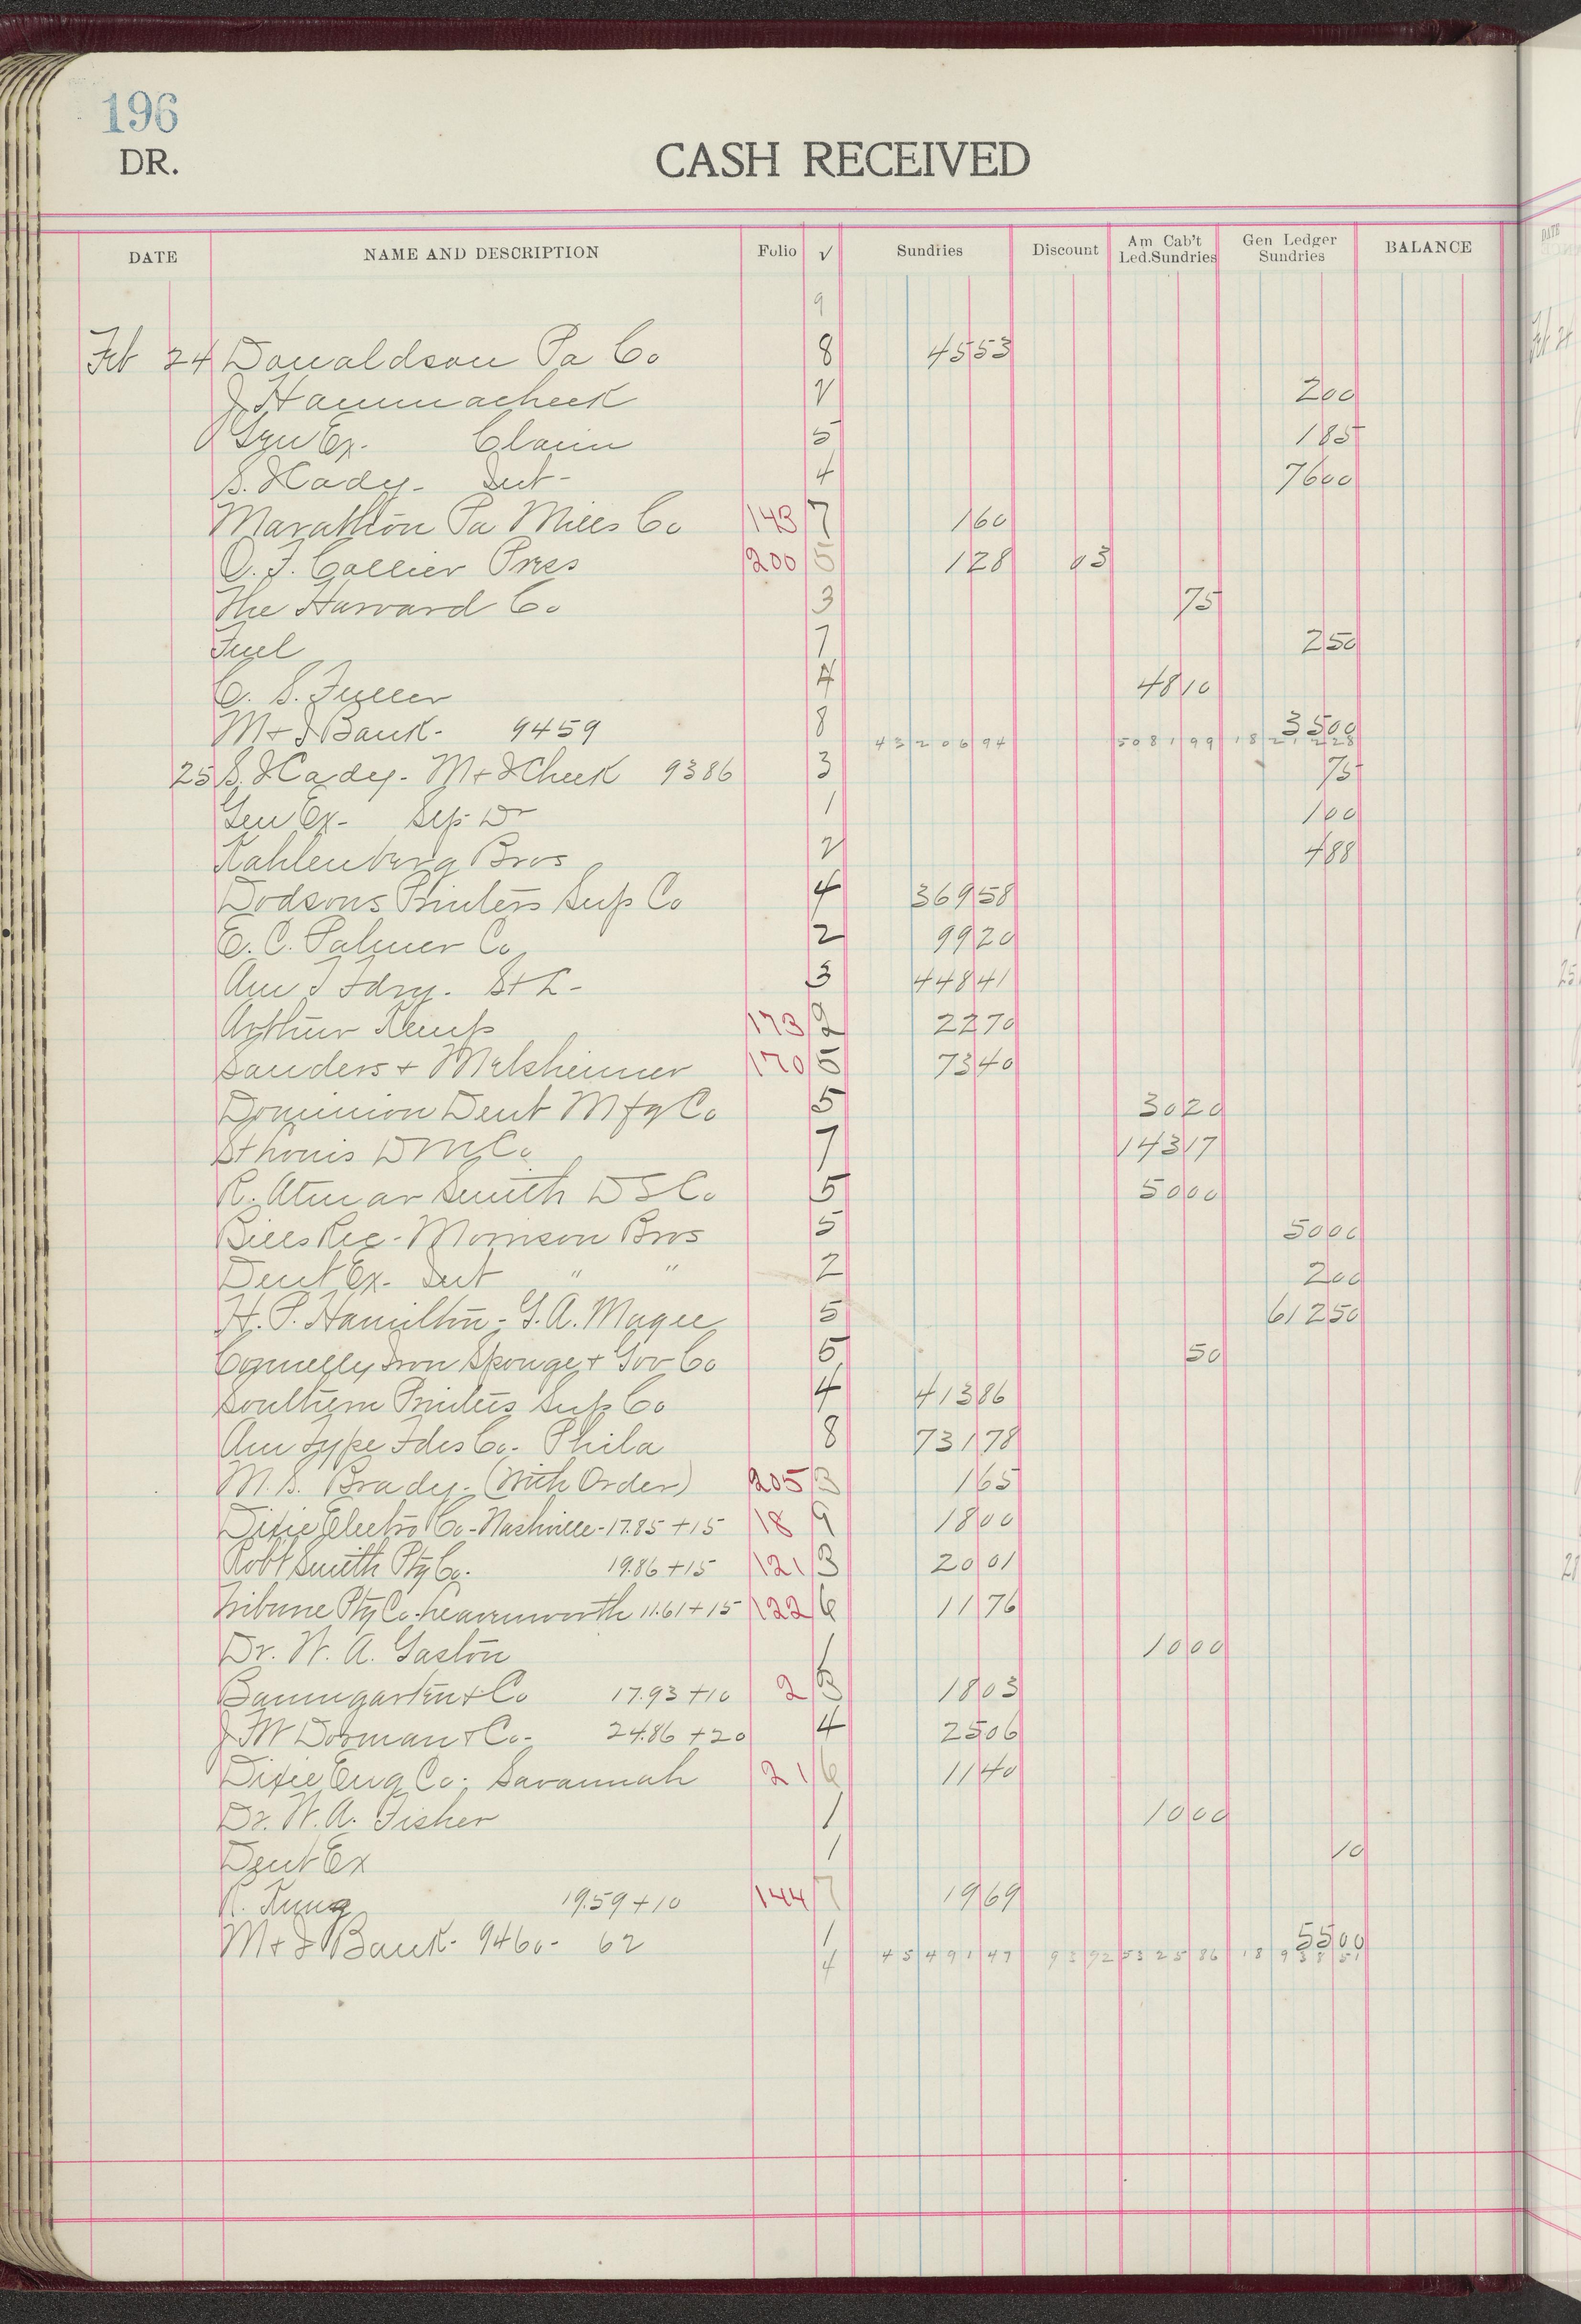 196
DR.
CASH RECEIVED
DATE NAME AND DESCRIPTION Folio √ Sundries Discount Am Cab't Led.Sundries Gen Ledger Sundries BALANCE
9
Feb 24 Donaldson Pa Co 8 45 53
J Hammacheck √ 2 00
Gen Ex. Claim 5 1 85
S. H Cady - Int - 4 76 00
Marathon Pa Mills Co 143 7 1 60
O. F. Collier Press 200 5 1 28 03
The Harvard Co 3 75
Fuel 7 2 50
C. S. Fuller 4 48 10
M + I Bank - 9459 8 35 00
43 206 94 50 81 99 18 21 2 28
25 S. H Cady - M + I Check 9386 3 75
Gen Ex - 1 1 00
Kahlenberg Bros 2 4 88
Dodsons Printers Sup Co 4 369 58
E. C. Palmer Co 2 99 20
Am T Fdry. St L - 3 448 41
Arthur Kemp 173 2 22 70
Sanders + Melsheimer 170 5 73 40
Dominion Dent Mfg Co 5 30 20
St Louis D M Co 7 143 17
R. Atmar Smith D S Co 5 50 00
Bills Rec - Morrison Bros 5 50 00
Dent Ex - Int " " 2 2 00
H. P. Hamilton - G. A. Magee 5 612 50
Connelly Iron Sponge + Gov Co 5 50
Southern Printers Sup Co 4 413 86
Am Type Fdrs Co - Phila 8 731 78
M. S. Brady - (With Order) 205 3 1 65
Dixie Electro Co - Nashville - 17.85 + 15 18 9 18 00
Robt Smith Ptg Co. 19.86 + 15 121 3 20 01
Tribune Ptg Co - Leavenworth 11.61 + 15 122 6 11 76
Dr. W. A. Gaston 1 10 00
Baumgarten + Co 17.93 + 10 2 3 18 03
J F W Dorman + Co - 24.86 + 20 4 25 06
Dixie Eng Co. Savannah 21 6 11 40
Dr. W. A. Fisher 1 10 00
Dent Ex 1 10
R. Kung 19.59 + 10 144 7 19 69
M + I Bank - 9460 - 62 1 55 00
4 45 491 47 93 72 53 25 86 18 9 38 51